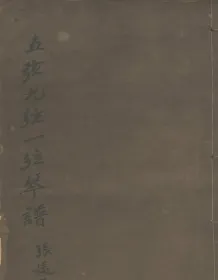 五弦九弦一弦琴譜